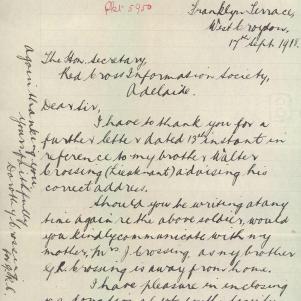 Pkt 5950
Franklyn Terrace,
West Croydon,
17th Sept 1918.
The Hon. Secretary,
Red Cross Information Society,
Adelaide.
Dear Sir,
I have to thank you for a
further letter dated 13th instant in
reference to my brother Walter
Crossing (Lieutenant) advising his
correct address.
Should you be writing at any
time again re the above soldier, would
you kindly communicate with my
mother, Mrs J. Crossing, as my brother
Crossing is away from home.
I have pleasure in enclosing
Again thanking you,
Yours faithfully
Dorothy Crossing